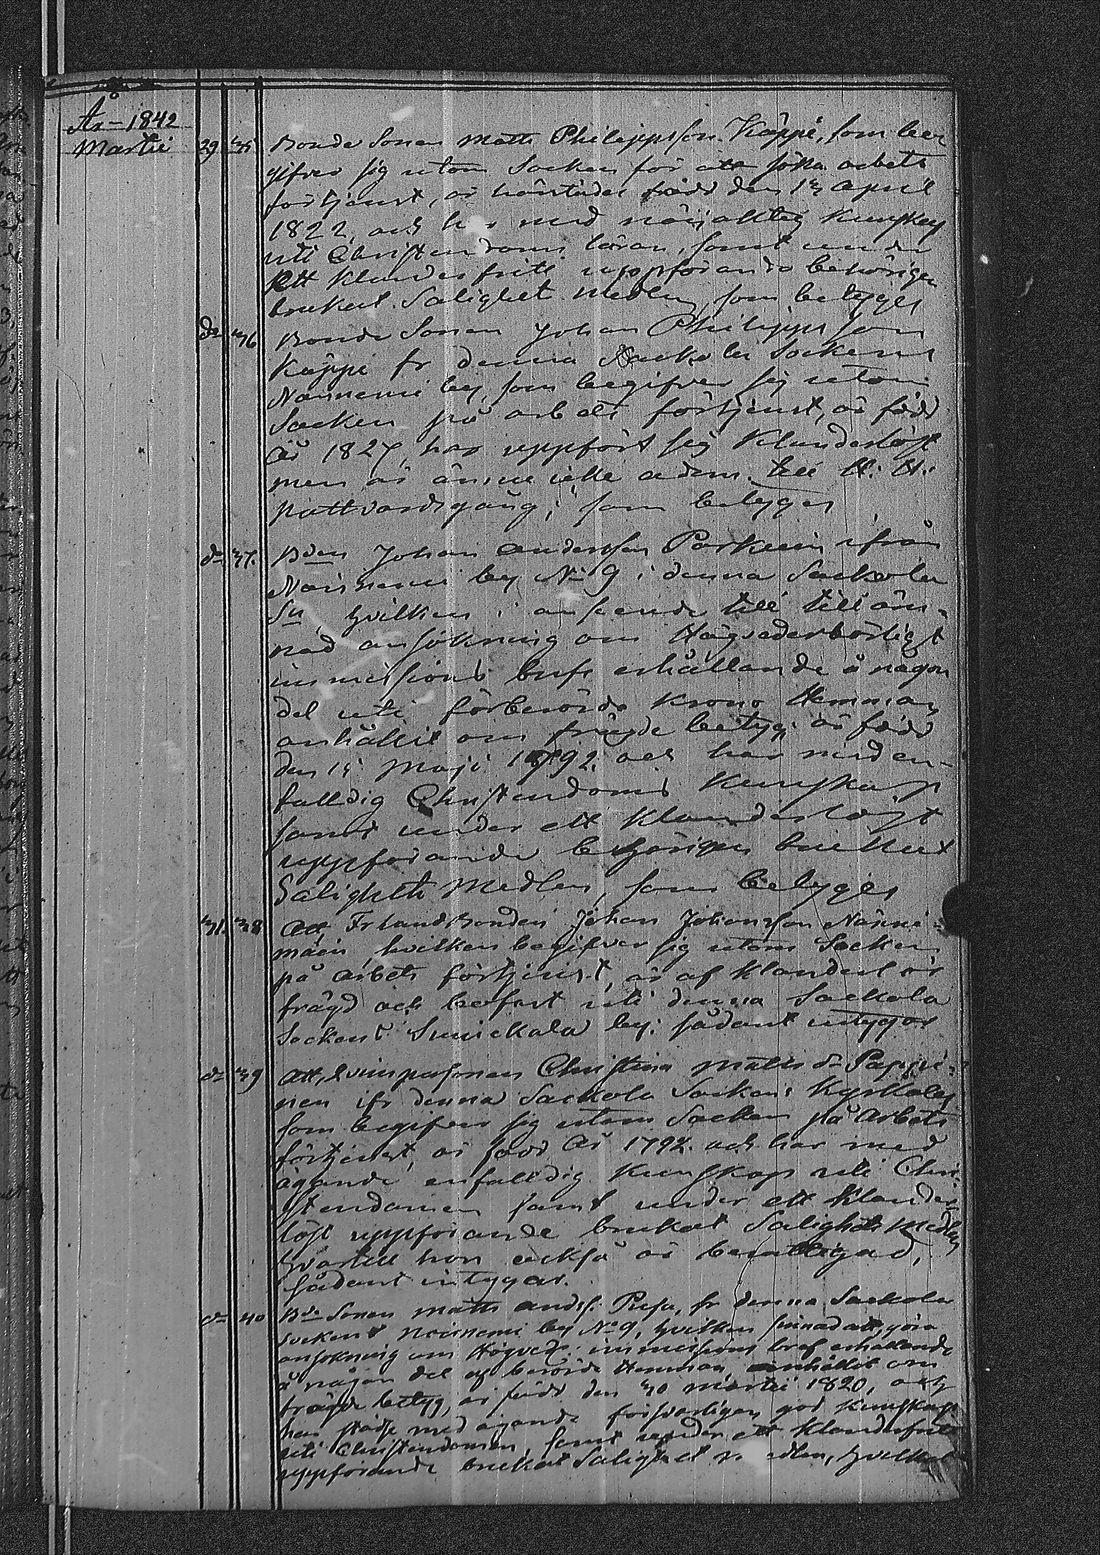 År 1842
Martii 29 35 Bonde Sonen Matts Philippsson Käppi, som be=
gifver sig utom Socken för att söka arbets
förtjenst, är härstädes född den 13 April
1822, och har med nöjaktig kunskap
uti Christendoms läran, samt under
ett klanderfritt uppförande behörigen
brukat Salighets medlen, som betyges
do 36 Bonde Sonen Johan Philippsson
Käppi fr denna Sackola Sockens
Nännemi by, som begifver sig utom
Socken på arbets förtjenst, är född
år 1827, har uppfört sig klanderlöst
men är ännu icke adm. till H. H.
nattvardsgång; som betyges
do 37. Bden Johan Andersson Parkuin ifrån
Nännemi by No 9 i denna Sackola
Sn hvilken i anseende till till äm=
nad ansökning om Högvederbörligt
immissions bref erhållande å någon
del uti förberörde Krono Hemman
anhållit om frägde betyg, är född
den 15 Maji 1792. och har med en=
falldig Christendoms Kunskap
samt under ett Klanderlöst
uppförande behörigen brukat
Salighets Medlen, som betyges
31. 38 Att Frlands Bonden Johan Johansson Nänni=
mäin, hvilken begifver sig utom Socken
på arbets förtjenst, är af klanderlös
frägd och bofast uti denna Sackola
Sockens Snickala by; sådant intygar
do 39 Att, qvinspersonen Christina Mattsdr Pappi=
nen ifr denna Sackola Sockens Kyrkoby
som begifver sig utom Socken på Arbets
förtjenst, är född År 1792. och har med
ägande enfalldig Kunskap uti Chri=
stendomen samt under ett klander
löst uppförande brukat Salighets Medlen
hvartill hon också är berättigad,
sådant intygar.
do 40 Bde Sonen Matts Andss. Pusa, fr denna Sackola
Sockens Nännemi by No 9, hvilken sinnad att göra
ansökning om Högved: immissions bref erhållande
å någon del af berörde Hemman anhållit om
frägde betyg, är född den 30 Martii 1820, och
har städse med ägande försvarligen god kunskap
uti Christendomen, samt under ett klanderfritt
uppförande brukat Salighets medlen, hvilket